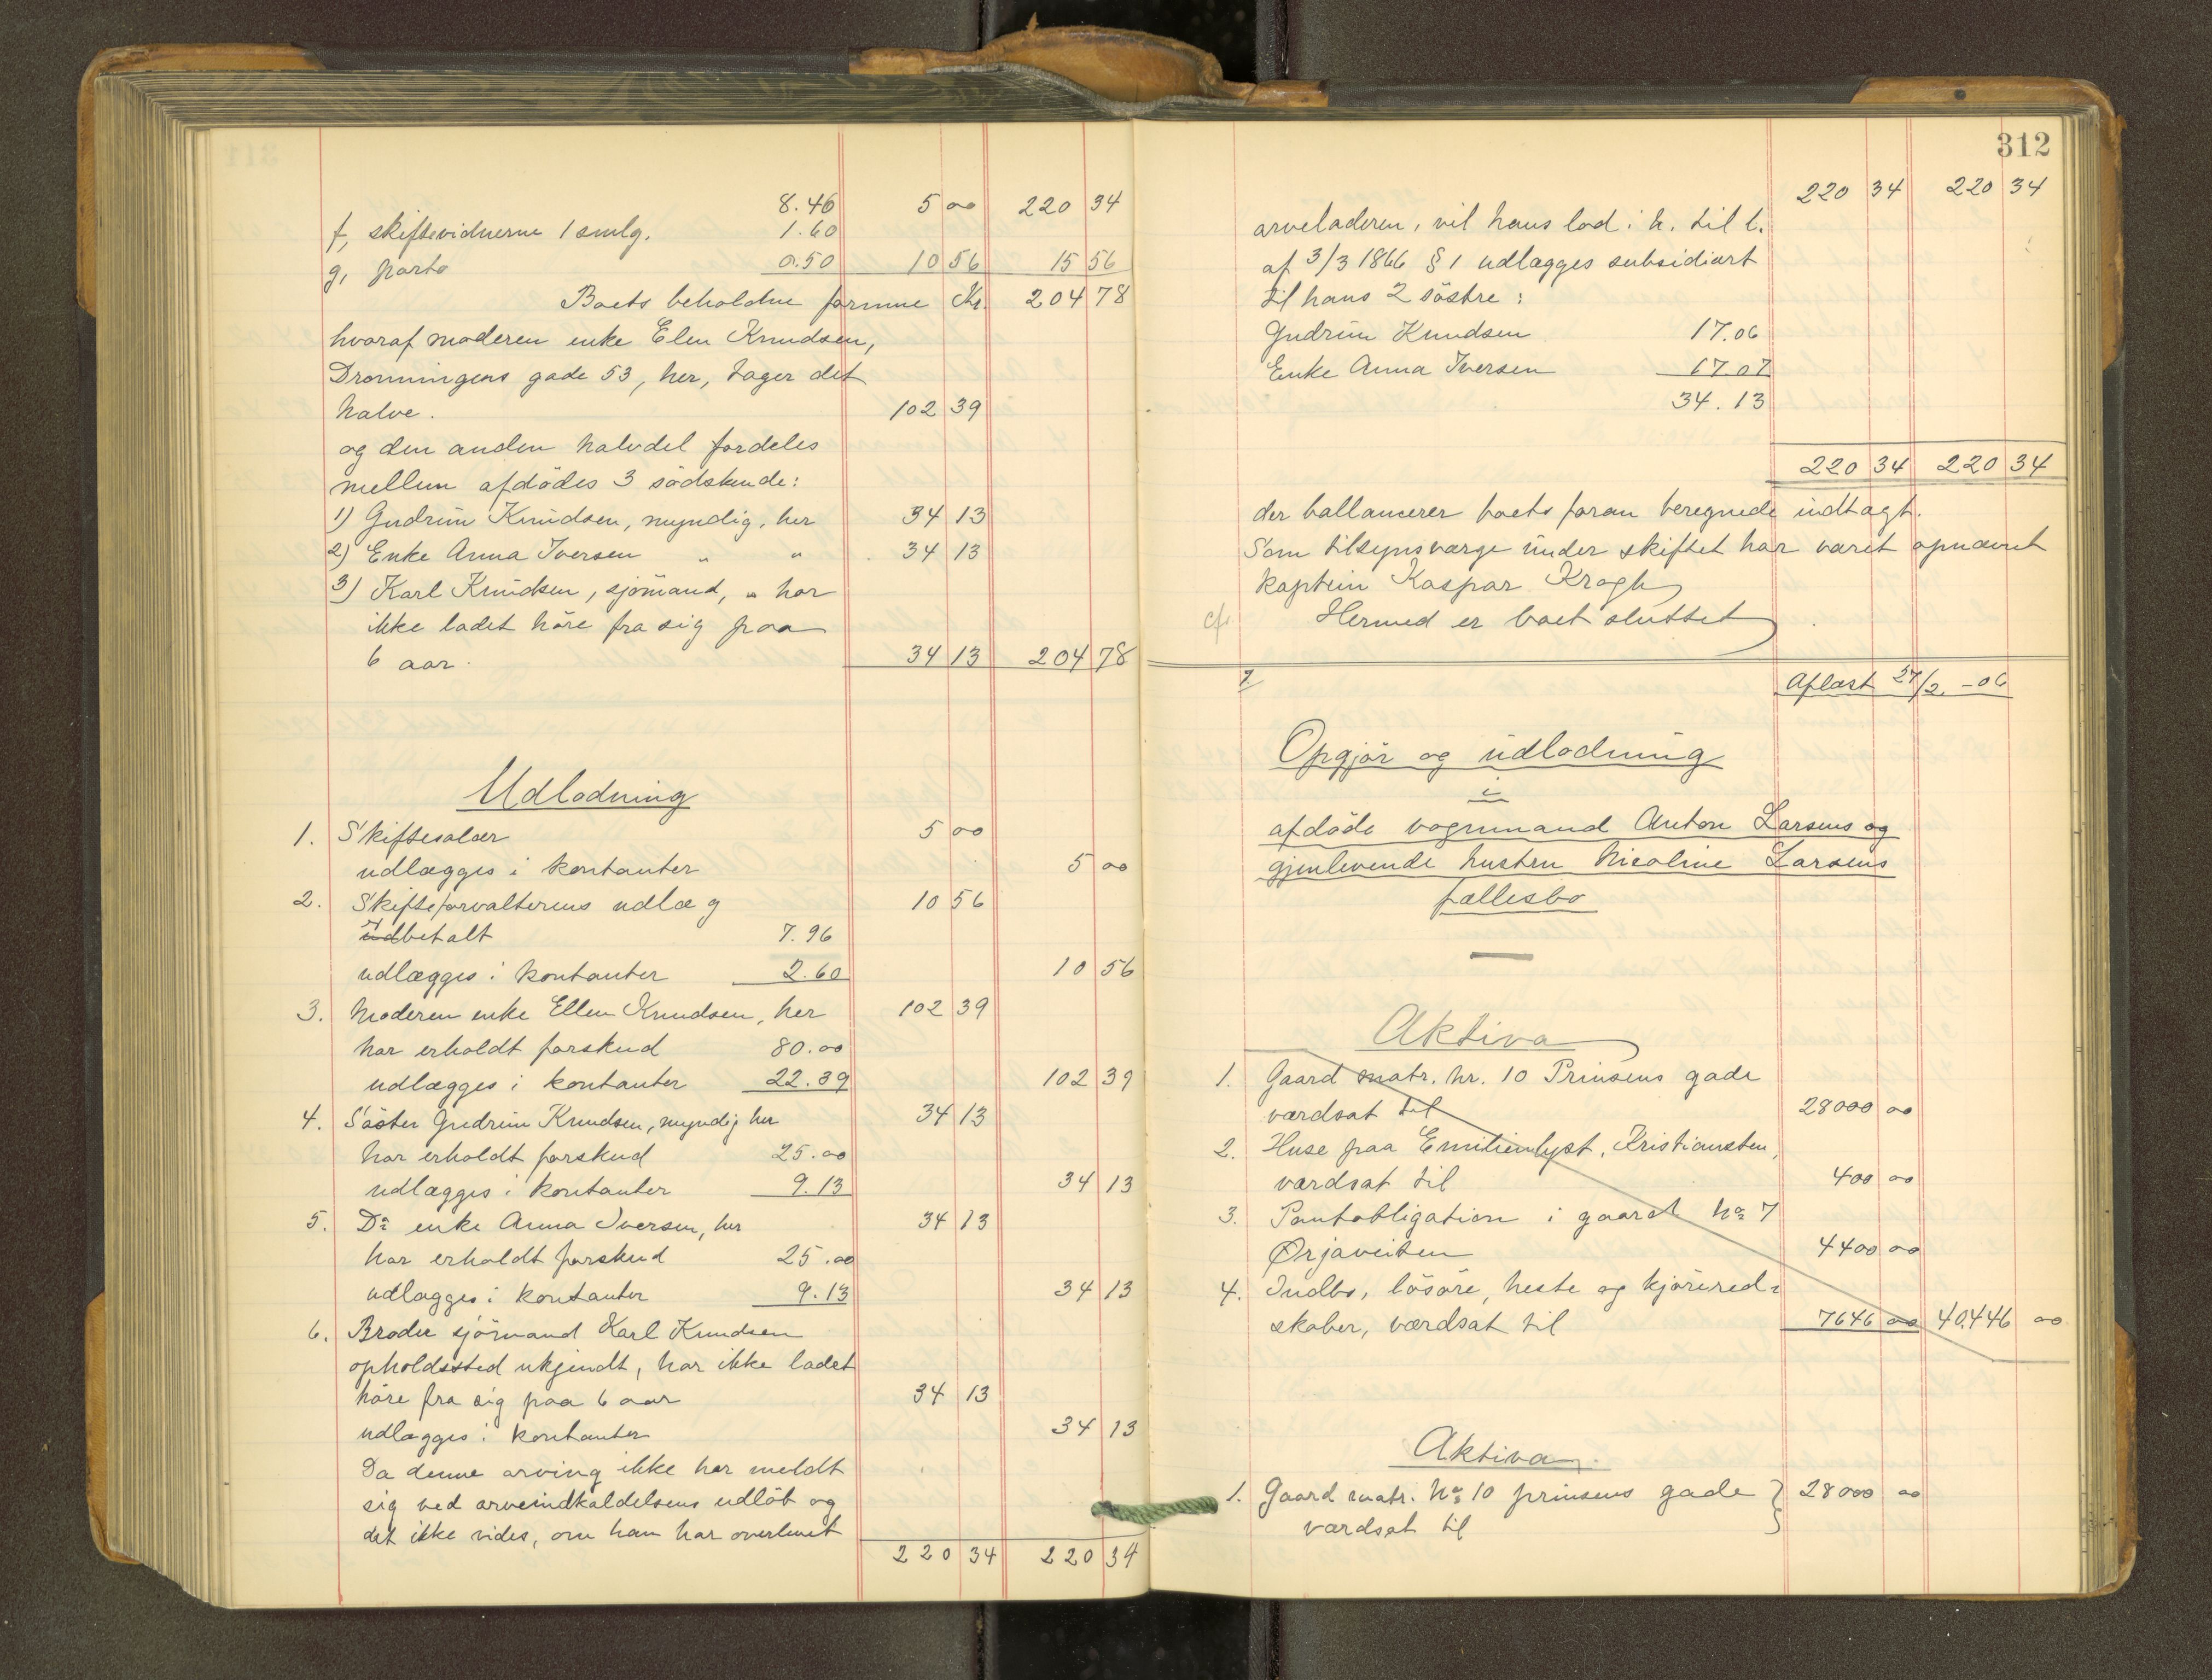 8.46 5 00 220 34
f, skiftevidnerne 1 smlg. 1.60
g, porto 0.50 10 56 15 56
Boets beholdne formue Kr. 204 78
hvoraf moderen enke Elen Knudsen,
Dronningens gade 53, her, tager det
halve. 102 39
og den anden halvdel fordeles
mellem afdödes 3 södskende:
1) Gudrun Knudsen, myndig, her 34 13
2) Enke Anna Iversen " " 34 13
3) Karl Knudsen, sjömand, " har
ikke ladet höre fra sig paa
6 aar. 34 13 204 78
Udlodning
1. Skiftesalær 5 00
udlægges i kontanter 5 00
2. Skifteforvalterens udlæg 10 56
udbetalt 7.96
udlægges i kontanter 2.60 10 56
3. Moderen enke Ellen Knudsen, her 102 39
har erholdt forskud 80.00
udlægges i kontanter 22.39 102 39
4. Söster Gudrun Knudsen, myndig her 34 13
har erholdt forskud 25.00
udlægges i kontanter 9.13 34 13
5. Do enke Anna Iversen, her 34 13
har erholdt forskud 25.00
udlægges i kontanter 9.13 34 13
6. Broder sjömand Karl Knudsen
opholdssted ukjendt, har ikke ladet
höre fra sig paa 6 aar 34 13
udlægges i kontanter 34 13
Da denne arving ikke har meldt
sig ved arveindkaldelsens udlöb og
det ikke vides, om han har overlevet
220 34 220 34
312
220 34 220 34
arveladeren, vil hans lod i h. til l.
af 3/3 1866 § 1 udlægges subsidiært
til hans 2 söstre:
Gudrun Knudsen 17.06
Enke Anna Iversen 17.07
34.13
220 34 220 34
der ballancerer boets foran beregnede indtægt.
Som tilsynsværge under skiftet har været opnævnt
kaptein Kaspar Krogh
Hermed er boet sluttet
7. Aflæst 27/2. -06
Opgjör og udlodning
i
afdöde vognmand Anton Larsens og
gjenlevende hustru Nicoline Larsens
fællesbo
Aktiva
1. Gaard matr. nr. 10 Prinsens gade
værdsat til 28000 00
2. Huse paa Emilienlyst, Kristiansten,
værdsat til 400 00
3. Pantobligation i gaard No 7
Ørjaveiten 4400 00
4. Indbo, lösöre, heste og kjörered-
skaber, værdsat til 7646 00 40,446 00
Aktiva
1. Gaard matr. No 10 prinsens gade } 28000 00
værdsat til